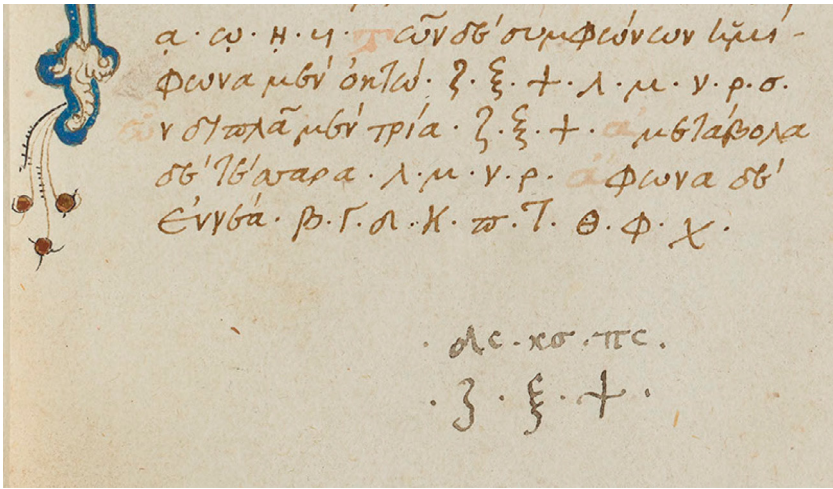 ᾳ · ῳ · ῃ · Τῶν δὲ συμφώνων ἡμί-
φωνα μὲν ὀκτώ · ζ · ξ · ψ · λ · μ · ν · ρ · σ.
ὧν διπλᾶ μὲν τρία · ζ · ξ · ψ · ἀμετάβολα
δὲ τέσσαρα · λ · μ · ν · ρ · ἄφωνα δὲ
ἐννέα · β · γ · δ · κ · π · τ · θ · φ · χ ·
· δς · κσ · πς.
· ζ · ξ · ψ ·